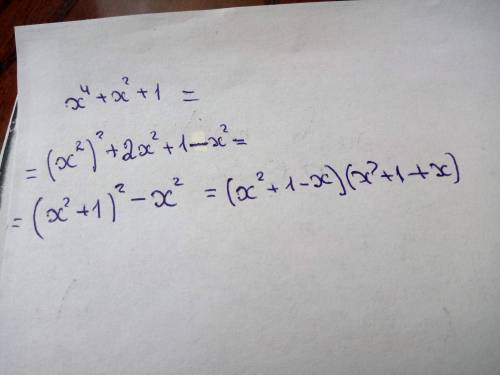 x⁴ + x² + 1 =
= (x²)² + 2x² + 1 − x² =
= (x² + 1)² − x² = (x² + 1 − x)(x² + 1 + x)